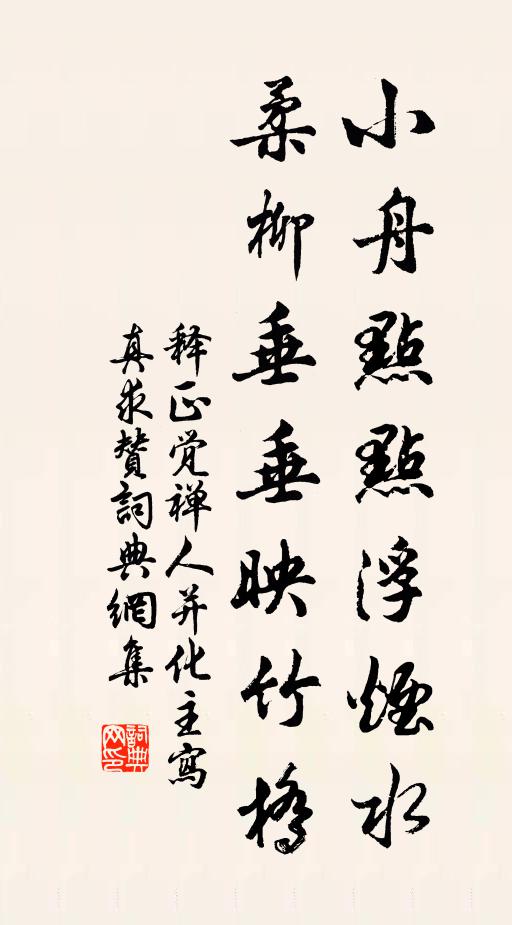 小舟點點浮煙水
柔柳垂垂映竹橋
释正觉禅人并化主寫
真求赞詞典網集
詞典网印